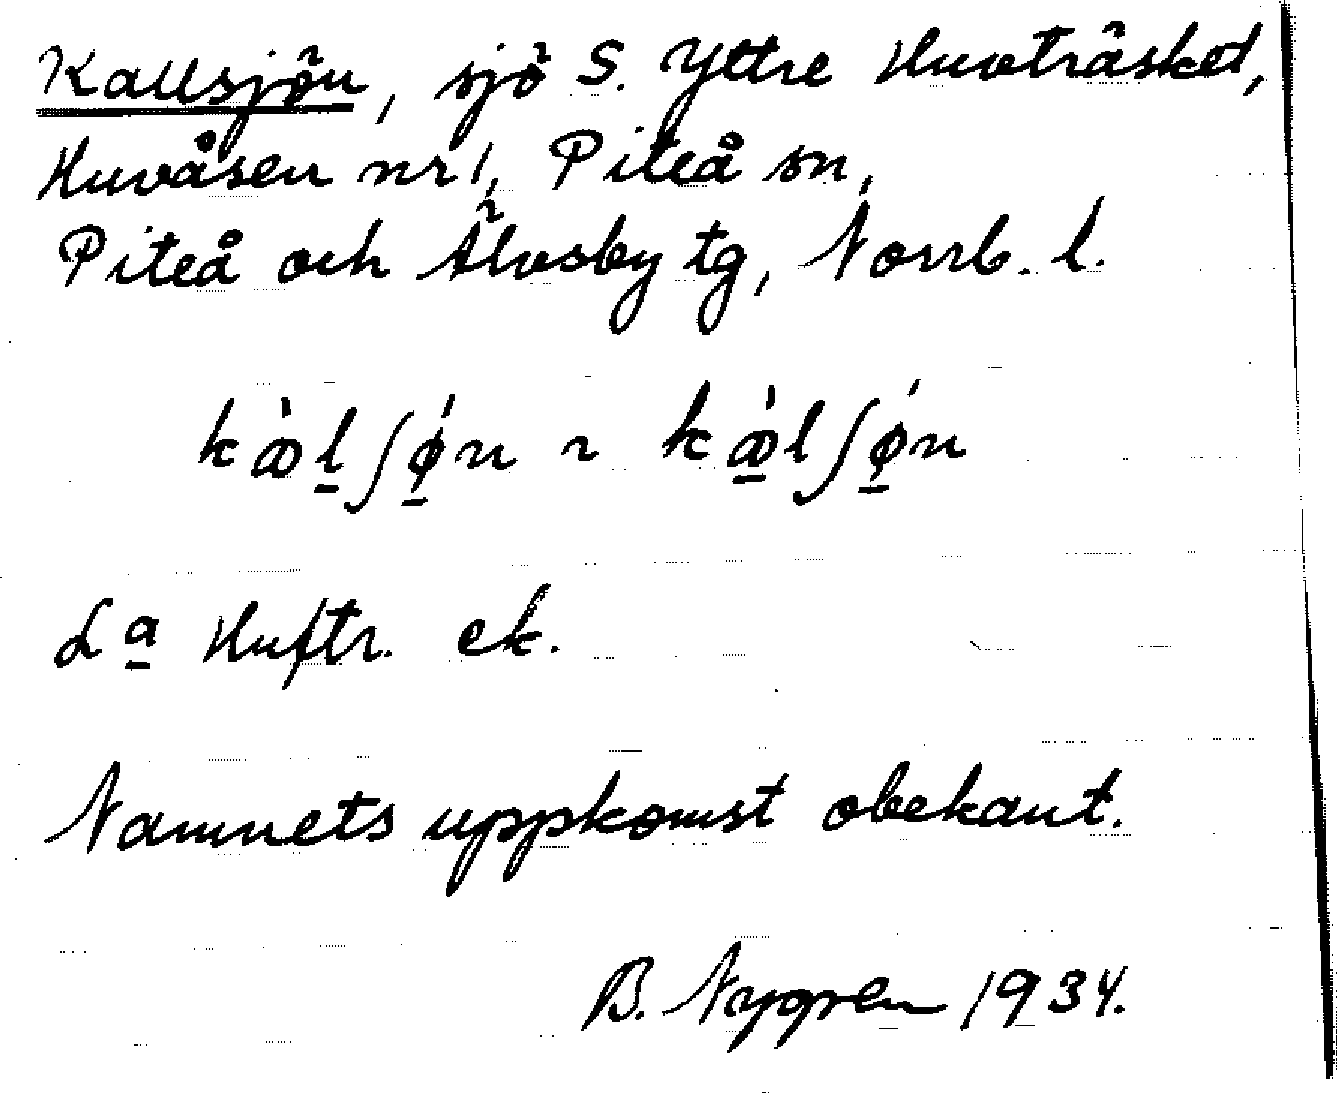 Kallsjön, sjö S. Yttre Huvträsket,
Huvåsen nr 1, Piteå sn,
Piteå och Älvsby tg, Norrb. l.
kà̀l̠ʃǿ̠n ~ kæ̠̀lʃǿ̠n
La̠ Huftr. ek.
Namnets uppkomst obekant.
B. Nygren 1934.